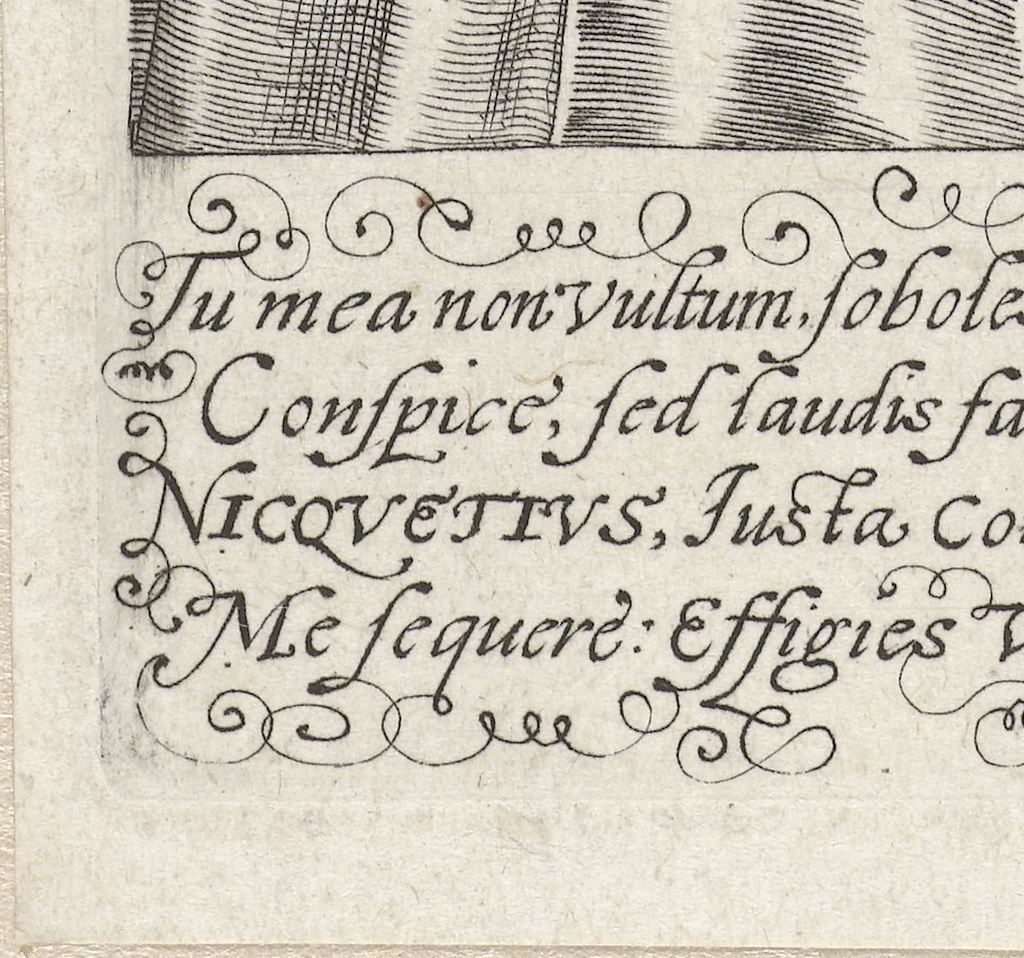 Tu mea non vultum, ſoboles
Conſpice, ſed laudis fa
NICQVETIVS, Iusta co
Me ſequere: Effigies V